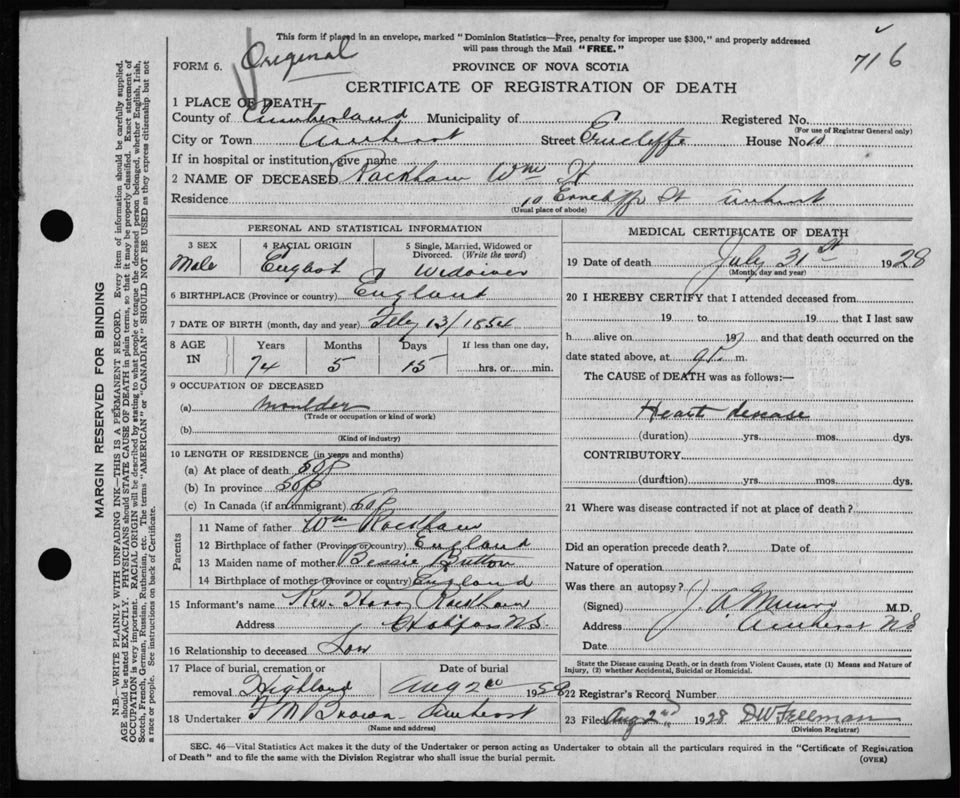 This form if placed in an envelope, marked "Dominion Statistics—Free, penalty for improper use $300," and properly addressed
will pass through the Mail "FREE."
Original
716
FORM 6.
PROVINCE OF NOVA SCOTIA
CERTIFICATE OF REGISTRATION OF DEATH
MARGIN RESERVED FOR BINDING
N.B.—WRITE PLAINLY WITH UNFADING INK—THIS IS A PERMANENT RECORD. Every item of information should be carefully supplied.
AGE should be stated EXACTLY. PHYSICIANS should STATE CAUSE OF DEATH in plain terms, so that it may be properly classified. Exact statement of
OCCUPATION is very important. RACIAL ORIGIN will be described by stating to what people or tongue the deceased person belonged, whether English, Irish,
Scotch, French, German, Russian, Ruthenian, etc. The terms "AMERICAN" or "CANADIAN" SHOULD NOT BE USED as they express citizenship but not
a race or people. See instructions on back of Certificate.
1 PLACE OF DEATH
County of Cumberland Municipality of Registered No.
(For use of Registrar General only)
City or Town Amherst Street Erncliffe House No. 10
If in hospital or institution, give name
2 NAME OF DECEASED Rackham Wm H
Residence 10 Erncliffe St Amherst
(Usual place of abode)
PERSONAL AND STATISTICAL INFORMATION
3 SEX 4 RACIAL ORIGIN 5 Single, Married, Widowed or Divorced. (Write the word)
Male English Widower
6 BIRTHPLACE (Province or country) England
7 DATE OF BIRTH (month, day and year) Feby 13/1854
8 AGE IN Years Months Days If less than one day,
74 5 15 hrs. or min.
9 OCCUPATION OF DECEASED
(a) moulder
(Trade or occupation or kind of work)
(b)
(Kind of industry)
10 LENGTH OF RESIDENCE (in years and months)
(a) At place of death
(b) In province
(c) In Canada (if an immigrant)
Parents
11 Name of father Wm Rackham
12 Birthplace of father (Province or country) England
13 Maiden name of mother Bessie Button
14 Birthplace of mother (Province or country) England
15 Informant's name Rev. Harry Rackham
Address Halifax N.S.
16 Relationship to deceased Son
17 Place of burial, cremation or Date of burial
removal Highland Aug 2nd 1928
18 Undertaker F M Brown Amherst
(Name and address)
MEDICAL CERTIFICATE OF DEATH
19 Date of death July 31st 1928
(Month, day and year)
20 I HEREBY CERTIFY that I attended deceased from
19 to 19 that I last saw
h alive on 19 and that death occurred on the
date stated above, at 9P. m.
The CAUSE of DEATH was as follows:—
Heart disease
(duration) yrs. mos. dys.
CONTRIBUTORY
(duration) yrs. mos. dys.
21 Where was disease contracted if not at place of death?
Did an operation precede death? Date of
Nature of operation
Was there an autopsy?
(Signed) J. A Munro M.D.
Address Amherst N S
Date
State the Disease causing Death, or in death from Violent Causes, state (1) Means and Nature of
Injury, (2) whether Accidental, Suicidal or Homicidal.
22 Registrar's Record Number
23 Filed Aug 2nd 1928 DW Fellman
(Division Registrar)
SEC. 46—Vital Statistics Act makes it the duty of the Undertaker or person acting as Undertaker to obtain all the particulars required in the "Certificate of Registration
of Death" and to file the same with the Division Registrar who shall issue the burial permit.
(OVER)